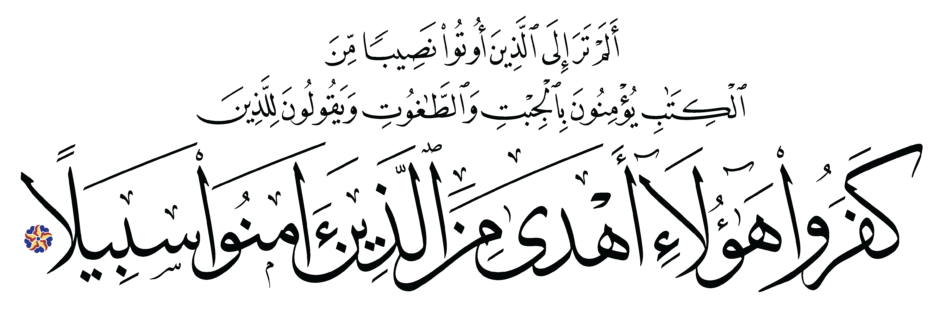 أَلَمْ تَرَ إِلَى ٱلَّذِينَ أُوتُوا۟ نَصِيبًا مِّنَ
ٱلْكِتَٰبِ يُؤْمِنُونَ بِٱلْجِبْتِ وَٱلطَّٰغُوتِ وَيَقُولُونَ لِلَّذِينَ
كَفَرُوا۟ هَٰٓؤُلَآءِ أَهْدَىٰ مِنَ ٱلَّذِينَ ءَامَنُوا۟ سَبِيلًا